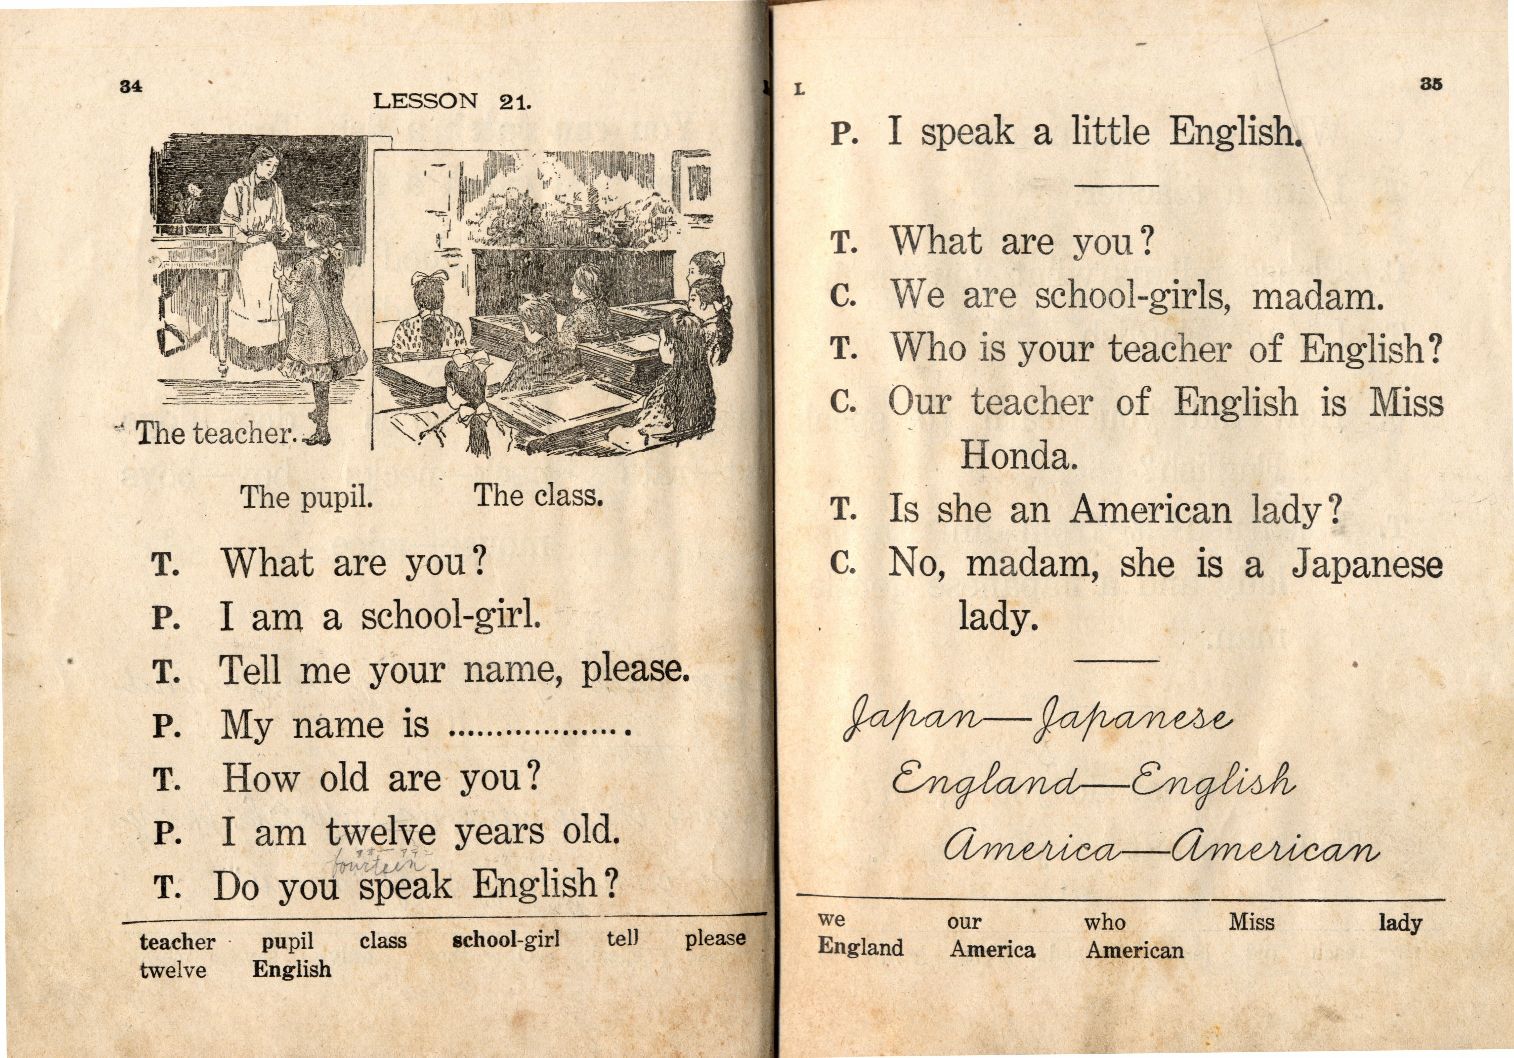 34
LESSON 21.
The teacher.
The pupil. The class.
T. What are you?
P. I am a school-girl.
T. Tell me your name, please.
P. My name is ....................
T. How old are you?
P. I am twelve years old.
fourteen
T. Do you speak English?
teacher pupil class school-girl tell please
twelve English
I. 35
P. I speak a little English.
T. What are you?
C. We are school-girls, madam.
T. Who is your teacher of English?
C. Our teacher of English is Miss
Honda.
T. Is she an American lady?
C. No, madam, she is a Japanese
lady.
Japan—Japanese
England—English
America—American
we our who Miss lady
England America American